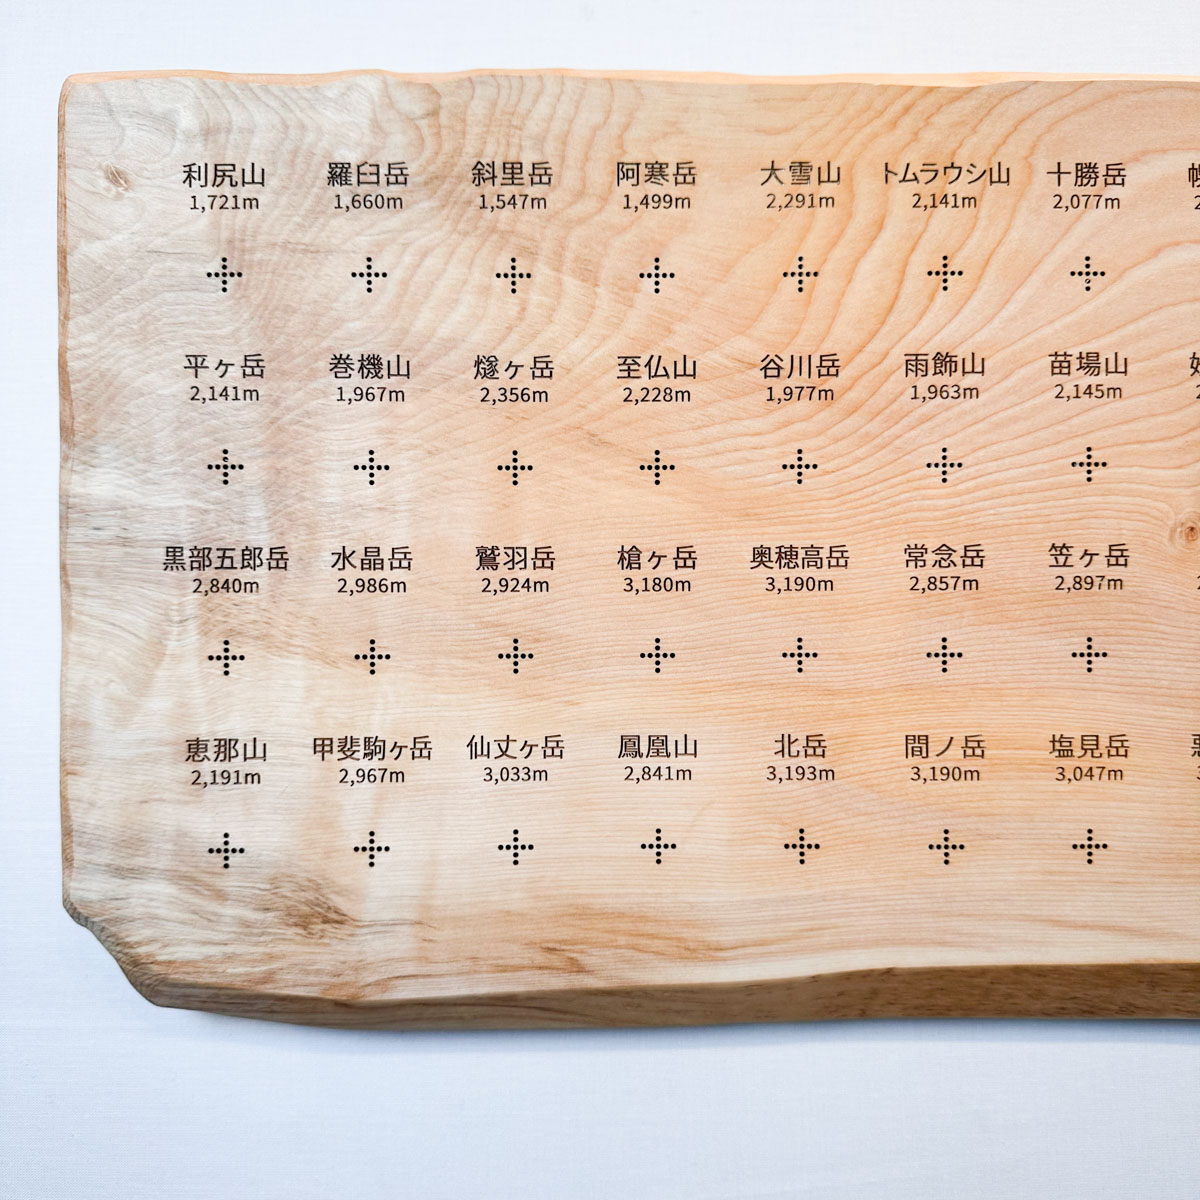 利尻山 羅臼岳 斜里岳 阿寒岳 大雪山 トムラウシ山 十勝岳
1,721m 1,660m 1,547m 1,499m 2,291m 2,141m 2,077m
平ヶ岳 巻機山 燧ヶ岳 至仏山 谷川岳 雨飾山 苗場山
2,141m 1,967m 2,356m 2,228m 1,977m 1,963m 2,145m
黒部五郎岳 水晶岳 鷲羽岳 槍ヶ岳 奥穂高岳 常念岳 笠ヶ岳
2,840m 2,986m 2,924m 3,180m 3,190m 2,857m 2,897m
恵那山 甲斐駒ヶ岳 仙丈ヶ岳 鳳凰山 北岳 間ノ岳 塩見岳
2,191m 2,967m 3,033m 2,841m 3,193m 3,190m 3,047m